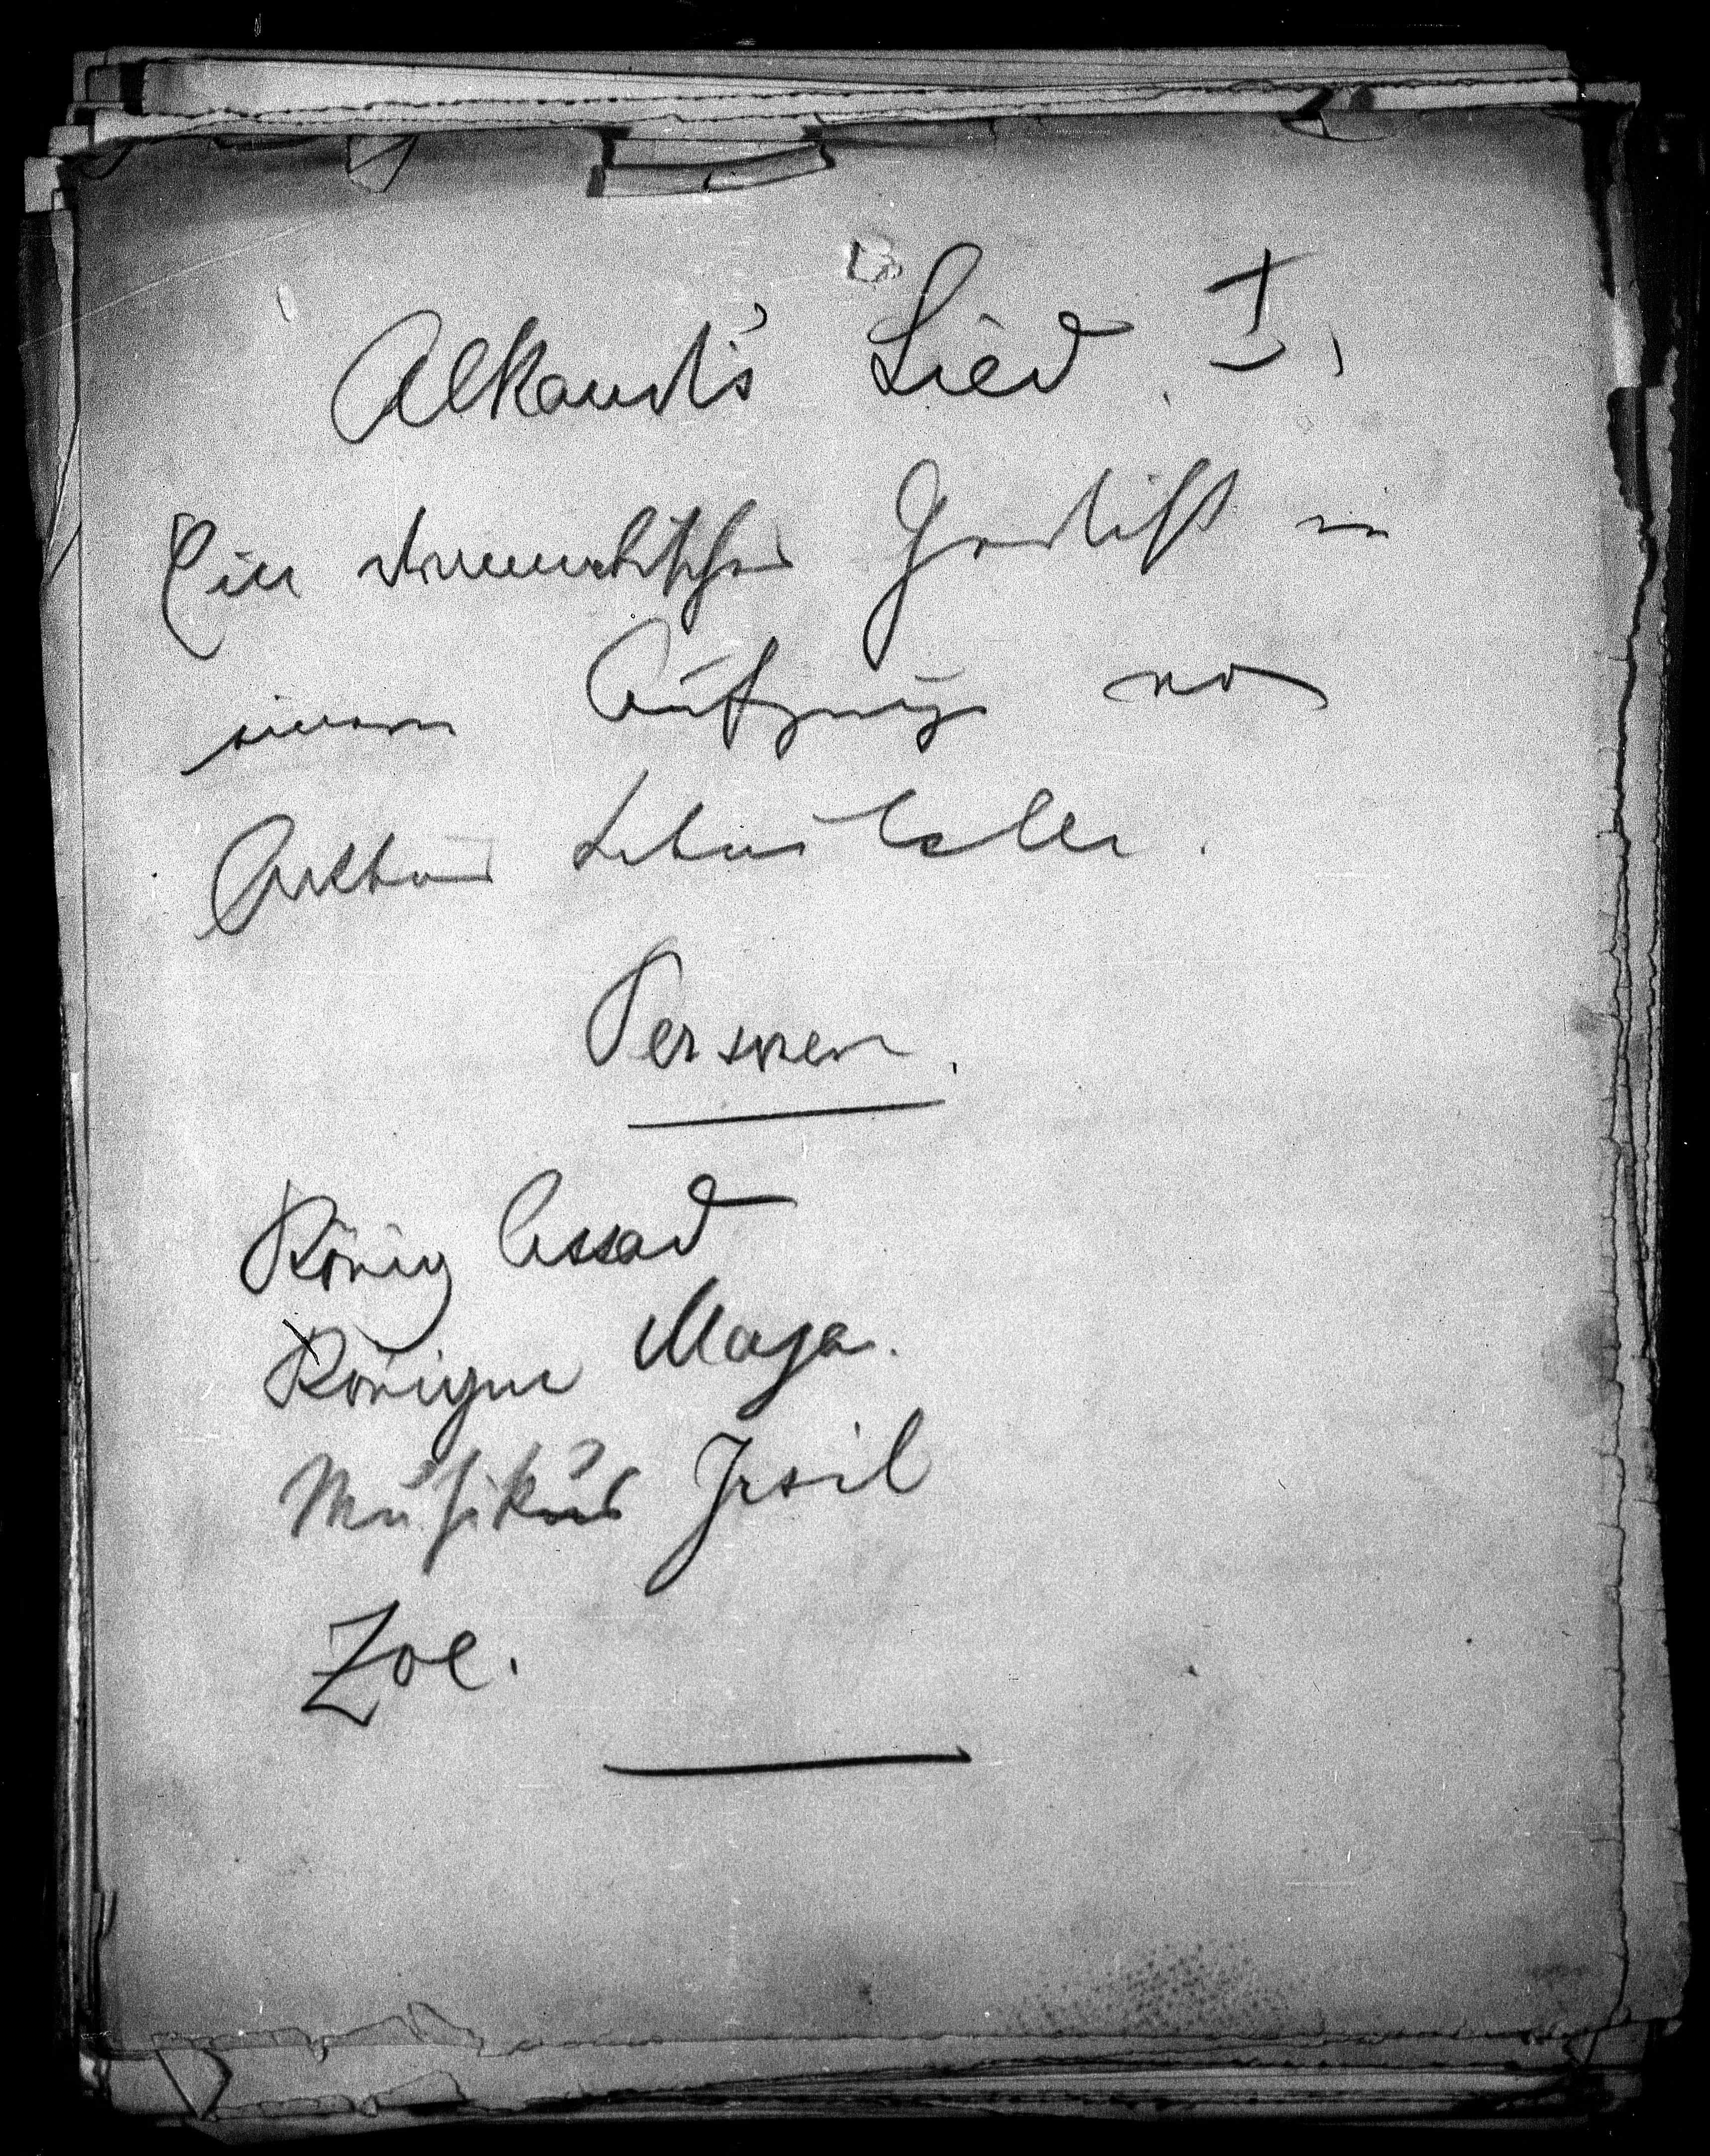 Alkandi's Lied. I.
Ein dramatisches Gedicht in
einem Aufzuge von
Arthur Schnitzler.
Personen.
König Assad
Königin Maja.
Musikus Irsil
Zoe.